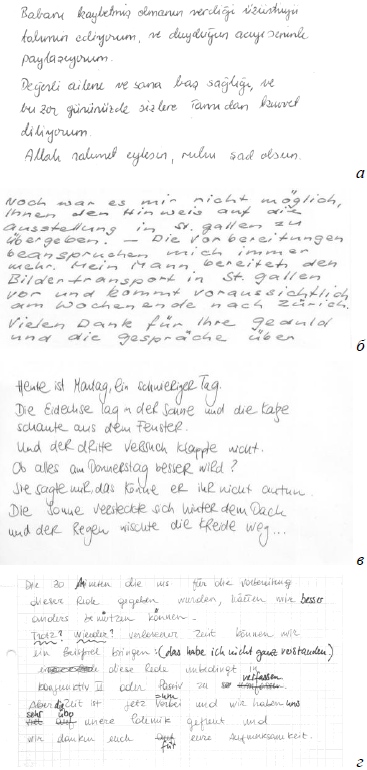 Babanı kaybetmiş olmanın verdiği üzüntüyü
tahmin ediyorum, ve duyduğun acıyı seninle
paylaşıyorum.
Değerli ailene ve sana baş sağlığı, ve
bu zor gününüzde sizlere Tanrıdan kuvvet
diliyorum.
Allah rahmet eylesin, ruhu şad olsun.
а
Noch war es mir nicht möglich,
Ihnen den Hinweis auf die
Ausstellung in St. Gallen zu
übergeben. – Die Vorbereitungen
beanspruchen mich immer
mehr. Mein Mann bereitet den
Bildertransport in St. Gallen
vor und kommt voraussichtlich
am Wochenende nach Zürich.
Vielen Dank für Ihre Geduld
und die Gespräche über
б
Heute ist Montag, ein schwieriger Tag.
Die Eidechse lag in der Sonne und die Katze
schaute aus dem Fenster.
Und der dritte Versuch klappte nicht.
Ob alles am Donnerstag besser wird?
Sie sagte mir, das könne er ihr nicht antun.
Die Sonne versteckte sich hinter dem Dach
und der Regen wischte die Kreide weg...
в
Die 20 Minuten die uns für die Vorbereitung
dieser Rede gegeben wurden, hätten wir besser
anders benützen können.
Trotz? Wieder? verlorener Zeit können wir
ein Beispiel bringen: (das habe ich nicht ganz verstanden)
diese Rede unbedingt in
Konjunktiv II oder Passiv zu verfassen
Aber die Zeit ist jetz vorbei und wir haben uns
sehr über unsere Polemik gefreut und
wir danken euch für eure Aufmerksamkeit.
г